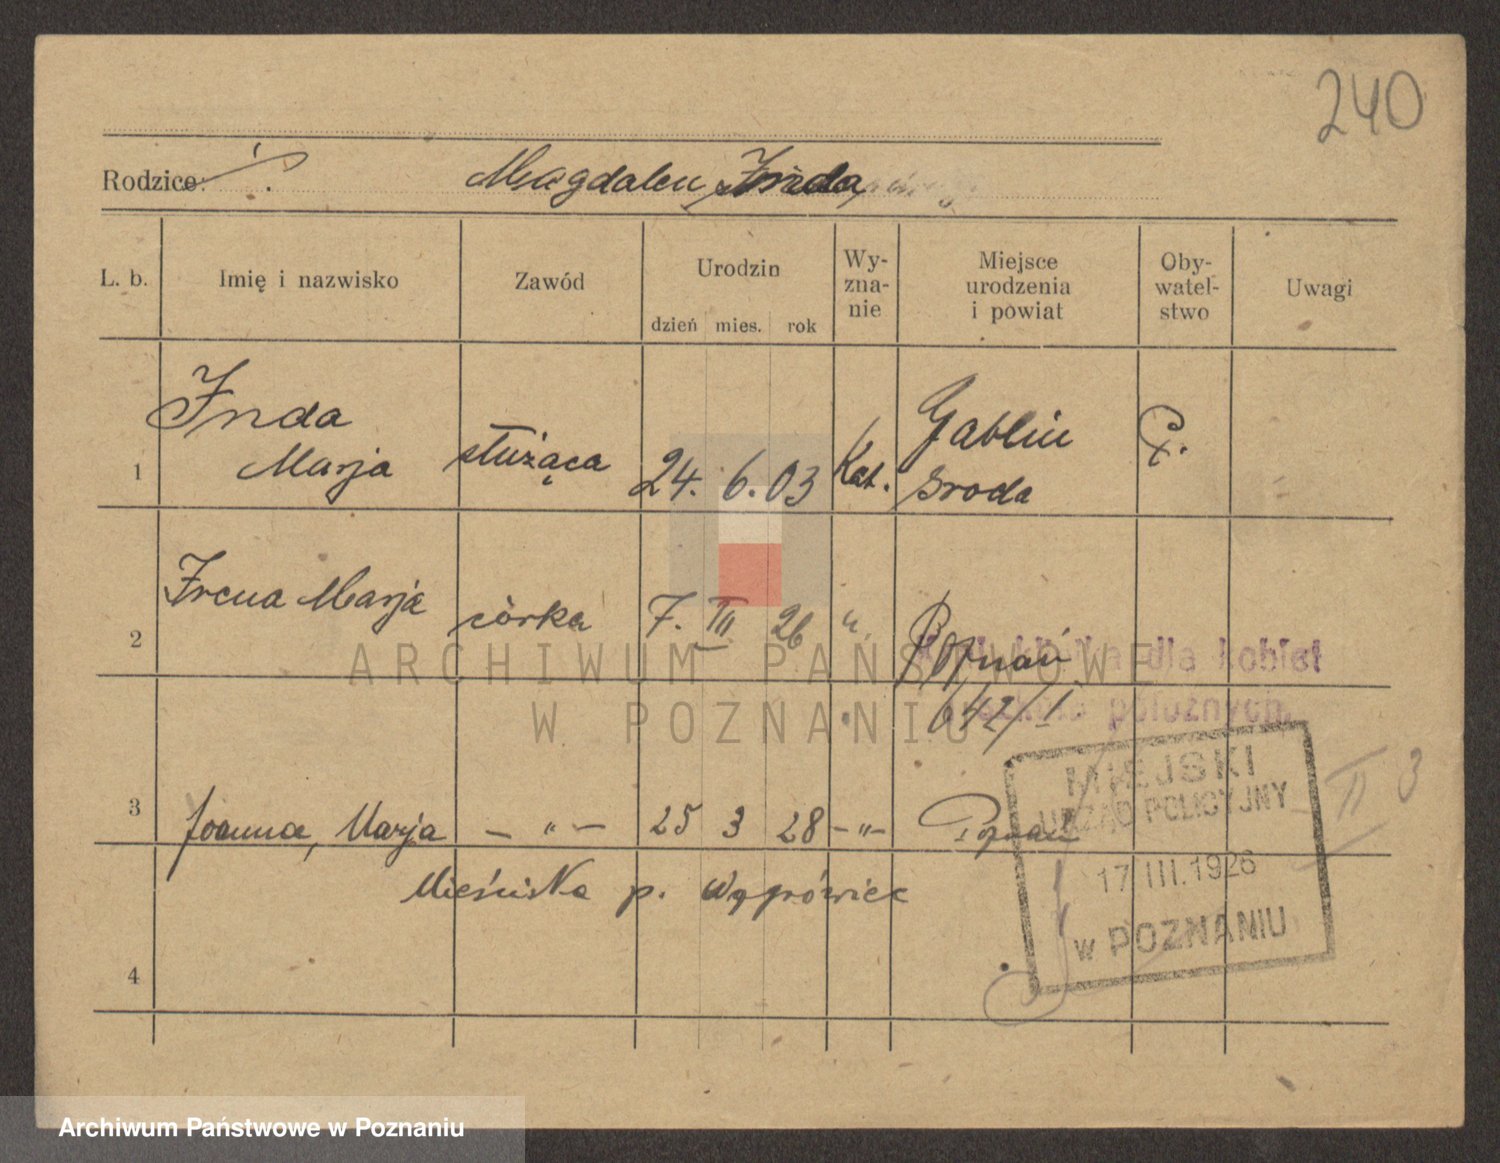 240
Rodzice: Magdalen Inda
L. b.
Imię i nazwisko
Zawód
Urodzin
dzień mies. rok
Wy-
zna-
nie
Miejsce
urodzenia
i powiat
Oby-
watel-
stwo
Uwagi
1
Inda
Marja
służąca
24. 6. 03
Kat.
Gablin
Sroda
P.
2
Irena Marja
córka
7. III 26
"
Poznań
642/I
dla kobiet
położnych
3
Joanna, Marja
— " —
25 3 28
— " —
Poznań
Mieścisko p. Wągrówiec
4
MIEJSKI
URZĄD POLICYJNY
17 III. 1926
w POZNANIU
II 3
ARCHIWUM PAŃSTWOWE
W POZNANIU
Archiwum Państwowe w Poznaniu